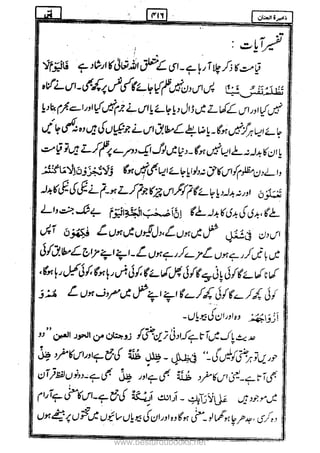 ذخیرة الجنان
۴۱۶
یٰسٓ
تفسیر آیات :
قیامت کا ذکر چلا آ رہا ہے۔ اسی کے متعلق اللہ تعالیٰ کا ارشاد ہے فَالْيَوْمَ لَا
تُظْلَمُ نَفْسٌ شَيْئًا پس اس دن نہیں ظلم کیا جائے گا کسی نفس پر کچھ بھی۔ اس نے گناہ
نہیں کیا اور اس کے کھاتے میں ڈال دیا جائے یا اس نے جرم نہیں کیا اور اسے مجرم بنا دیا
جائے ایسا ہرگز نہیں ہوگا۔ یا ضابطے کے مطابق اس نے جو نیکیاں کی ہیں وہ نہ لکھی جائیں
یا ان کا بدلہ نہ ملے ایسا نہیں ہوگا۔ دنیا میں لوگ ایک دوسرے پر ظلم کرتے ہیں تو قیامت
والے دن مظلوم کو اس کا حق نہ دلوایا جائے ایسا بھی نہیں ہوگا وَلَا تُجْزَوْنَ اِلَّا مَا كُنْتُمْ
تَعْمَلُوْنَ اور نہ بدلہ دیا جائے گا تم کو مگر اس چیز کا جو تم کرتے ہو۔ تم نے نیکی کی نیکی کا بدلہ
ملے گا، بدی کی بدی کا بدلہ ملے گا اِنَّ اَصْحٰبَ الْجَنَّةِ الْيَوْمَ بے شک جنت والے
اس دن فِيْ شُغُلٍ شغل میں ہوں گے، دل لگیوں میں ہوں گے فٰكِهُوْنَ آپس
میں باتیں کر رہے ہوں گے مزے کر رہے ہوں گے۔ اپنے اپنے مزاج کے مطابق کوئی
کھانا کھائے گا کوئی پانی پیے گا کوئی پھل کھائے گا کوئی ہنس رہا ہوگا، کوئی کھیل رہا ہوگا،
کوئی کچھ کرے گا کوئی کچھ کرے گا اپنے اپنے شغل میں مصروف ہوں گے هُمْ وَ
اَزْوَاجُهُمْ وہ اور ان کی بیویاں۔
حدیث پاک میں آتا ہے کہ ادنیٰ ترین جنتی کو زوجتان من الحور العين "دو
حوریں تو ہر جنتی کو ملیں گی۔" فِيْ ظِلٰلٍ ۔ ظِلٰلٍ ظُلَّةٌ کی جمع ہے اور اس کا مفرد ظِلٌّ
بھی آتا ہے۔ یعنی اس کا مفرد ظُلَّةٌ بھی ہے اور ظِلٌّ بھی ہے۔ دونوں لفظ قرآن
میں موجود ہیں عَلَى الْاَرَآئِكِ ۔ اَرَائِكِ اَرِيْكَةٌ کی جمع ہے۔ اس کا معنی ہے آرام
دہ کرسی، جدھر چاہو گھما لو۔ معنی ہوگا وہ اور ان کی بیویاں سایوں میں تختوں پر بیٹھے ہوں
www.besturdubooks.net